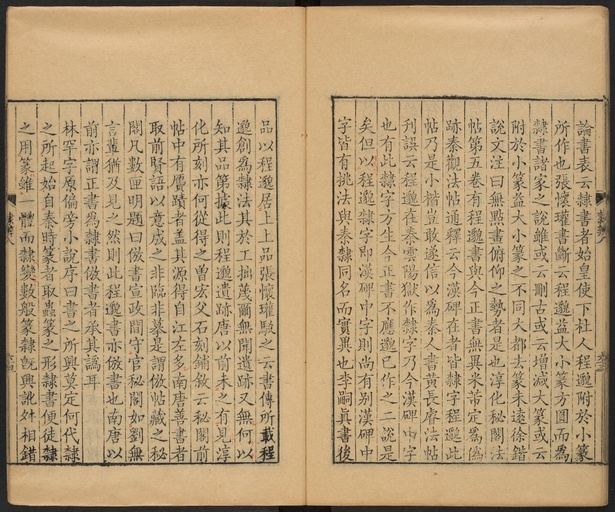 論書表云隸書者始皇使下杜人程邈附於小篆
所作也張懷瓘書斷云程邈益大小篆方圓而爲
隸書諧家之說雖或云刪古或云增減大篆或云
附於小篆益大小篆之不同大都去篆未遠徐鍇
說文注曰無點畫俯仰之勢者是也淳化秘閣法
帖第五卷有程邈書與今正書無異米芾定爲僞
跡秦觀法帖通釋云今漢碑在者皆隸字程邈此
帖乃是小楷豈敢遂信以爲秦人書黃長睿法帖
刊誤云程邈在秦雲陽獄作隸字乃今漢碑中字
也有此隸字方生今正書不應邈已作之二說是
矣但以程邈隸字即漢碑中字則尚有别漢碑中
字皆有挑法與秦隸同名而實異也李嗣眞書後
品以程邈居上上品張懷瓘駮之云書傳所載程
邈創爲隸法其於工拙蔑爾無聞遺跡又無何以
知其品第據此則程邈遺跡唐以前未之有見淳
化所刻亦何從得之曾宏父石刻鋪敘云秘閣前
帖中有贗蹟者盖其源得自江左多南唐善書者
取前賢語以意成之非臨非摹是謂倣帖藏之秘
閣凡數匣明題曰倣書宣政間守官秘閣如劉無
言輩猶及見之然則此程邈書亦倣書也南唐以
前亦謂正書爲隸書倣書者承其譌耳
林罕字原偏旁小說序曰書之所興莫定何代隸
之所起始自秦時篆者取蟲篆之形隸書便徒隸
之用篆雖一體而隸變數般篆隸旣興訛舛相錯
隸辨八